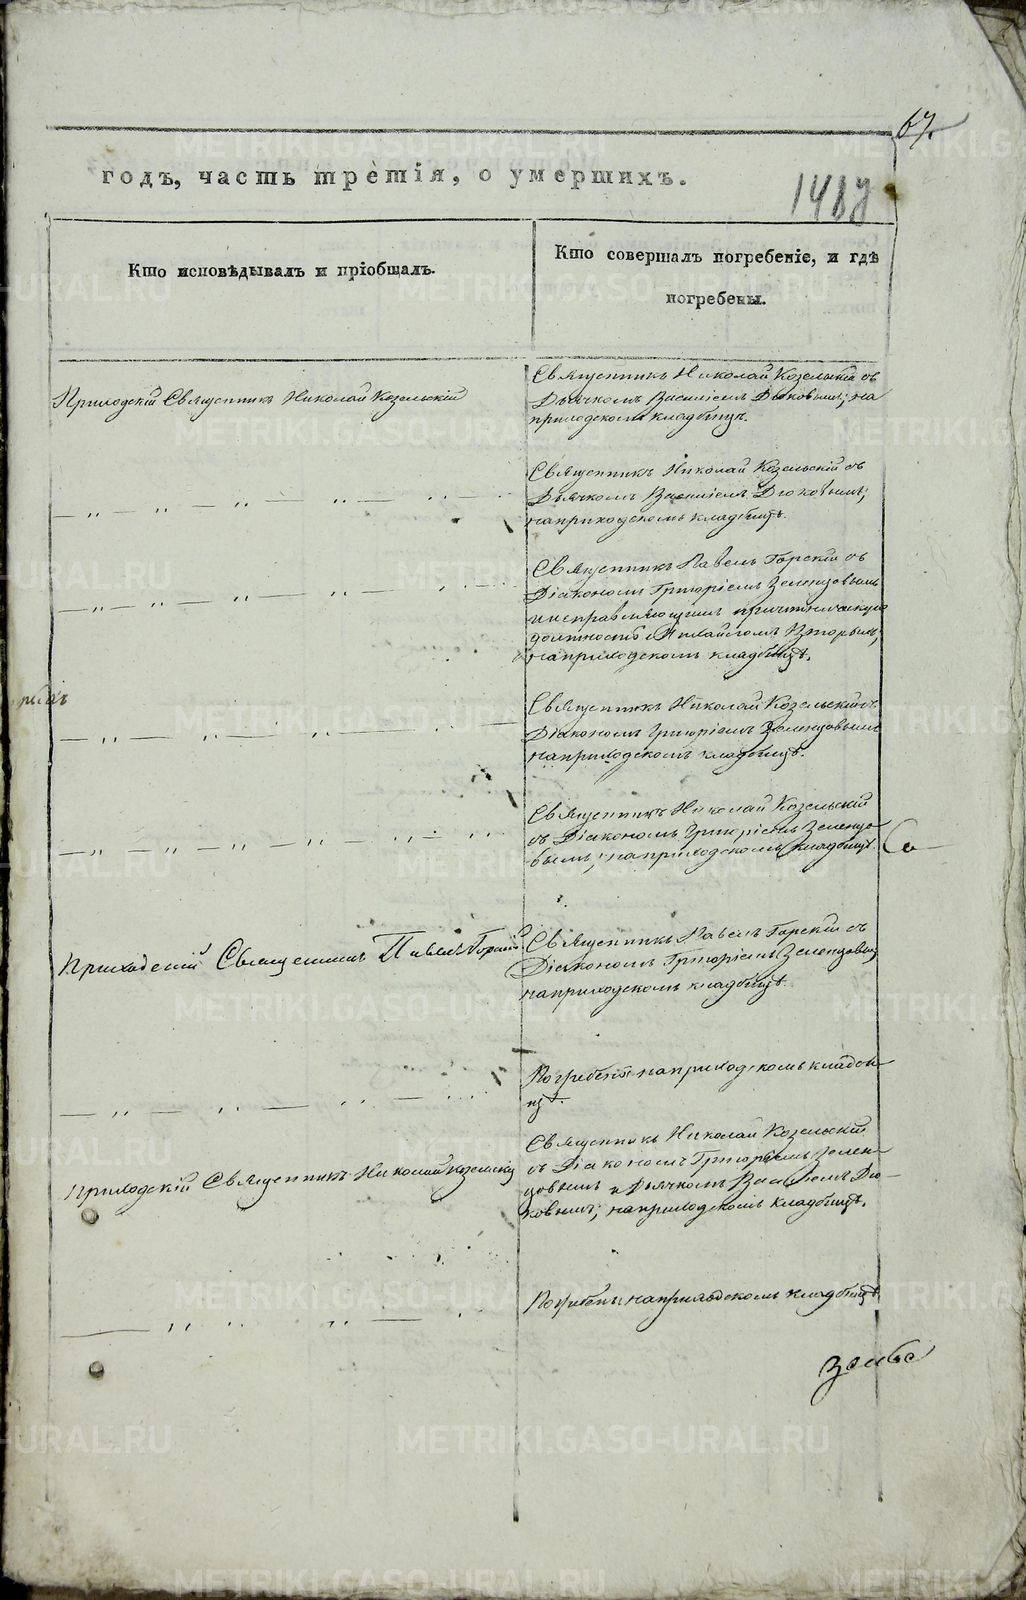 67.
годъ, часть третія, о умершихъ.
148
Кто исповѣдывалъ и пріобщалъ.
Кто совершалъ погребеніе, и гдѣ
погребены.
Приходскій Священникъ Николай Козельскій
Священникъ Николай Козельскій съ
Дьячкомъ Василіемъ Дюковымъ; на
приходскомъ кладбищѣ.
Священникъ Николай Козельскій съ
Дьячкомъ Василіемъ Дюковымъ;
на приходскомъ кладбищѣ.
Священникъ Павелъ Горскій съ
Діакономъ Григоріемъ Зеленцовымъ
и исправляющимъ причетническую
должность Вторымъ;
на приходскомъ кладбищѣ.
Священникъ Николай Козельскій съ
Діакономъ Григоріемъ Зеленцовымъ
на приходскомъ кладбищѣ.
Священникъ Николай Козельскій
съ Діакономъ Григоріемъ Зеленцо-
вымъ; на приходскомъ кладбищѣ.
Приходскій Священникъ Павелъ Горскій
Священникъ Павелъ Горскій съ
Діакономъ Григоріемъ Зеленцовым
на приходскомъ кладбищѣ.
Погребенъ на приходскомъ кладби-
щѣ.
Приходскій Священникъ Николай Козельскій
Священникъ Николай Козельскій
съ Діакономъ Григоріемъ Зелен-
цовымъ и Дьячкомъ Василіемъ Дю-
ковымъ; на приходскомъ кладбищѣ.
Погребены на приходскомъ кладбищѣ
METRIKI.GASO-URAL.RU